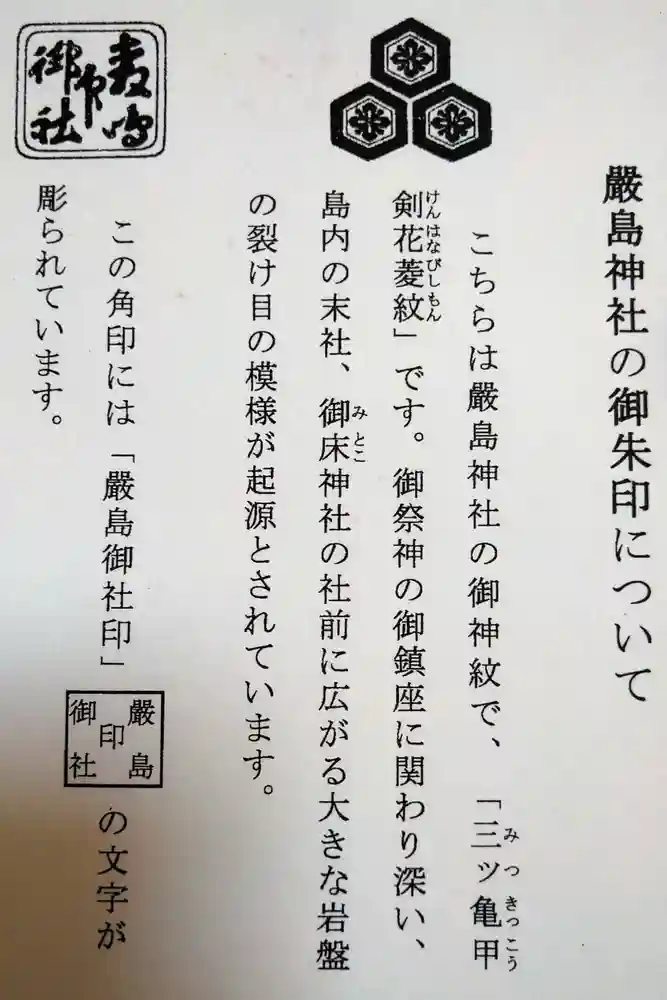 嚴島神社の御朱印について
こちらは嚴島神社の御神紋で、「三ツ亀甲
みつ きっこう
剣花菱紋」です。御祭神の御鎮座に関わり深い、
けんはなびしもん
島内の末社、御床神社の社前に広がる大きな岩盤
みとこ
の裂け目の模様が起源とされています。
この角印には「嚴島御社印」
嚴島
印
御社
の文字が
彫られています。
御社